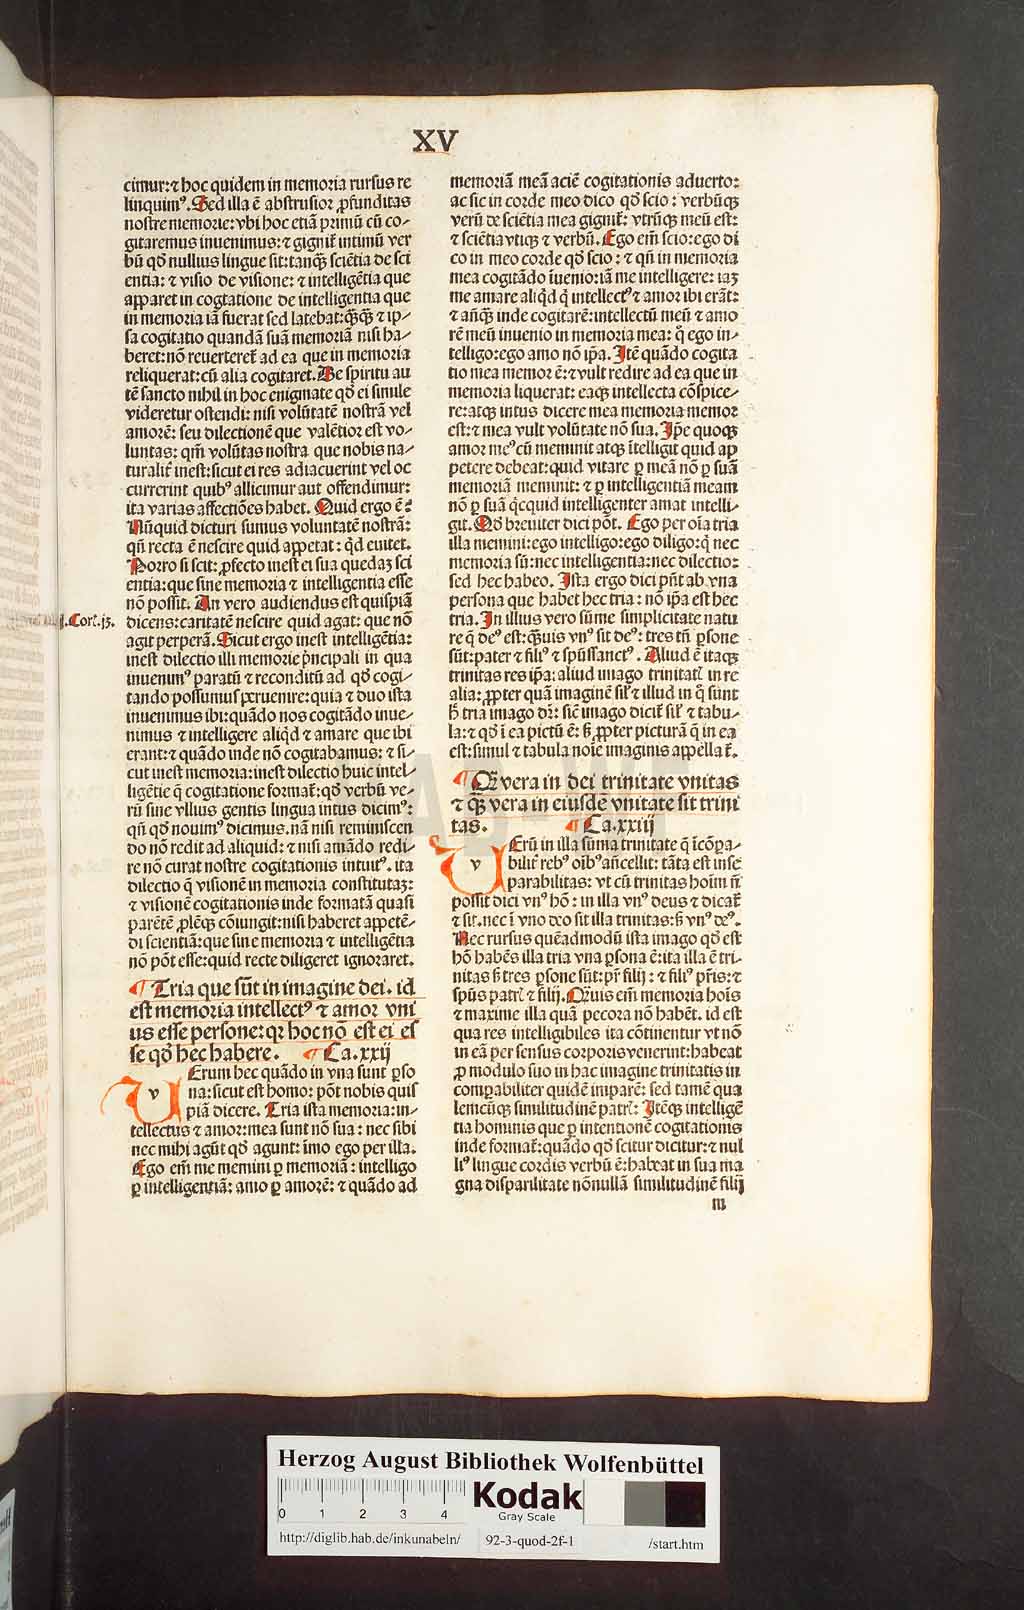 XV
cimur: ⁊ hoc quidem in memoria rursus re
linquimꝰ. Sed illa ē abstrusior ꝓfunditas
nostre memorie: vbi hoc etiā primū cū co⸗
gitaremus inuenimus: ⁊ gignit̄ intimū ver
bū qd̄ nullius lingue sit: tanqꝫ sciētia de sci
entia: ⁊ visio de visione: ⁊ intelligētia que
apparet in cogtatione de intelligentia que
in memoria iā fuerat sed latebat: qꝫqꝫ ⁊ ip⸗
sa cogitatio quandā suā memoriā nisi ha⸗
beret: nō reuerteret̄ ad ea que in memoria
reliquerat: cū alia cogitaret. De spiritu au
tē sancto nihil in hoc enigmate qd̄ ei simile
videretur ostendi: nisi volūtatē nostrā vel
amorē: seu dilectionē que valētior est vo⸗
luntas: qm̄ volūtas nostra que nobis na⸗
turalit̄ inest: sicut ei res adiacuerint vel oc
currerint quibꝰ allicimur aut offendimur:
ita varias affectiōes habet. Quid ergo ē:
Nūquid dicturi sumus voluntatē nostrā:
qn̄ recta ē nescire quid appetat: qd̄ euitet.
Porro si scit: ꝓfecto inest ei sua quedaꝫ sci
entia: que sine memoria ⁊ intelligentia esse
nō possit. An vero audiendus est quispiā
j. Cor. jꝫ.
dicens: caritatē nescire quid agat: que nō
agit perperā. Sicut ergo inest intelligētia:
inest dilectio illi memorie p̄ncipali in qua
inuenimꝰ paratū ⁊ reconditū ad qd̄ cogi⸗
tando possumus ꝑuenire: quia ⁊ duo ista
inuenimus ibi: quādo nos cogitādo inue⸗
nimus ⁊ intelligere aliqd̄ ⁊ amare que ibi
erant: ⁊ quādo inde nō cogitabamus: ⁊ si⸗
cut inest memoria: inest dilectio huic intel⸗
ligētie q̄ cogitatione format̄: qd̄ verbū ve⸗
rū sine vllius gentis lingua intus dicimꝰ:
qn̄ qd̄ nouimꝰ dicimus. nā nisi reminiscen
do nō redit ad aliquid: ⁊ nisi amādo redi⸗
re nō curat nostre cogitationis intuitꝰ. ita
dilectio q̄ visionē in memoria constitutaꝫ:
⁊ visionē cogitationis inde formatā quasi
parētē ꝓlēqꝫ cōiungit: nisi haberet appetē⸗
di scientiā: que sine memoria ⁊ intelligētia
nō pōt esse: quid recte diligeret ignoraret.
¶ Tria que sūt in imagine dei. id
est memoria intellectꝰ ⁊ amor vni
us esse persone: qr hoc nō est ei es
se qd̄ hec habere. ¶ Ca. xxij
vErum hec quādo in vna sunt ꝑso
na: sicut est homo: pōt nobis quis
piā dicere. Tria ista memoria: in⸗
tellectus ⁊ amor: mea sunt nō sua: nec sibi
nec mihi agūt qd̄ agunt: īmo ego per illa.
Ego em̄ me memini ꝑ memoriā: intelligo
ꝑ intelligentiā: amo ꝑ amorē: ⁊ quādo ad
memoriā meā aciē cogitationis aduerto:
ac sic in corde meo dico qd̄ scio: verbūqꝫ
verū de sciētia mea gignit̄: vtrūqꝫ meū est:
⁊ sciētia vtiqꝫ ⁊ verbū. Ego em̄ scio: ego di
co in meo corde qd̄ scio: ⁊ qn̄ in memoria
mea cogitādo īuenio: iā me intelligere: iaꝫ
me amare aliqd̄ q̄ intellectꝰ ⁊ amor ibi erāt:
⁊ an̄qꝫ inde cogitarē: intellectū meū ⁊ amo
rē meū inuenio in memoria mea: q̄ ego in⸗
telligo: ego amo nō ip̄a. Itē quādo cogita
tio mea memor ē: ⁊ vult redire ad ea que in
memoria liquerat: eaqꝫ intellecta cōspice⸗
re: atqꝫ intus dicere mea memoria memor
est: ⁊ mea vult volūtate nō sua. Ip̄e quoqꝫ
amor meꝰ cū meminit atqꝫ ītelligit quid ap
petere debeat: quid vitare ꝑ meā nō ꝑ suā
memoriā meminit: ⁊ ꝑ intelligentiā meam
nō ꝑ suā q̇cquid intelligenter amat intelli⸗
git. Qd̄ breuiter dici pōt. Ego per oīa tria
illa memini: ego intelligo: ego diligo: q̄ nec
memoria sū: nec intelligentia: nec dilectio:
sed hec habeo. Ista ergo dici pn̄t ab vna
persona que habet hec tria: nō ip̄a est hec
tria. In illius vero sūme simplicitate natu
re q̄ deꝰ est: qꝫuis vnꝰ sit deꝰ: tres tn̄ ꝑsone
sūt: pater ⁊ filiꝰ ⁊ sp̄ussanctꝰ. Aliud ē itaqꝫ
trinitas res ip̄a: aliud imago trinitatꝭ in re
alia: ꝓpter quā imaginē sil̄ ⁊ illud in q̄ sunt
h̄ tria imago dr̄: sic̄ imago dicit̄ sil̄ ⁊ tabu⸗
la: ⁊ qd̄ ī ea pictū ē: s̄ ꝓpter picturā q̄ in ea
est: simul ⁊ tabula noīe imaginis appellat̄.
¶ Qꝫ vera in dei trinitate vnitas
⁊ qꝫ vera in eiusdē vnitate sit trini
tas. ¶ Ca. xxiij
vErū in illa sūma trinitate q̄ īcōpa⸗
bilit̄ rebꝰ oībꝰ an̄cellit: tāta est inse
parabilitas: vt cū trinitas hoīm n̄
possit dici vnꝰ hō: in illa vnꝰ deus ⁊ dicat̄
⁊ sit. nec ī vno deo sit illa trinitas: s̄ vnꝰ deꝰ.
Nec rursus quēadmodū ista imago qd̄ est
hō habēs illa tria vna ꝑsona ē: ita illa ē tri⸗
nitas s̄ tres ꝑsone sūt: pr̄ filij: ⁊ filiꝰ pr̄is: ⁊
sp̄us patrꝭ ⁊ filij. Qꝫuis em̄ memoria hoīs
⁊ maxime illa quā pecora nō habēt. id est
qua res intelligibiles ita cōtinentur vt nō
in eā per sensus corporis venerint: habeat
ꝓ modulo suo in hac imagine trinitatis in
comꝑabiliter quidē imparē: sed tamē qua
lemcūqꝫ similitudinē patrꝭ: Itēqꝫ intelligē
tia hominis que ꝑ intentionē cogitationis
inde format̄: quādo qd̄ scitur dicitur: ⁊ nul
liꝰ lingue cordis verbū ē: habeat in sua ma
gna disparilitate nōnullā similitudinē filij
m
Herzog August Bibliothek Wolfenbüttel
0 1 2 3 4
Kodak
Gray Scale
http://diglib.hab.de/inkunabeln/ 92-3-quod-2f-1 /start.htm